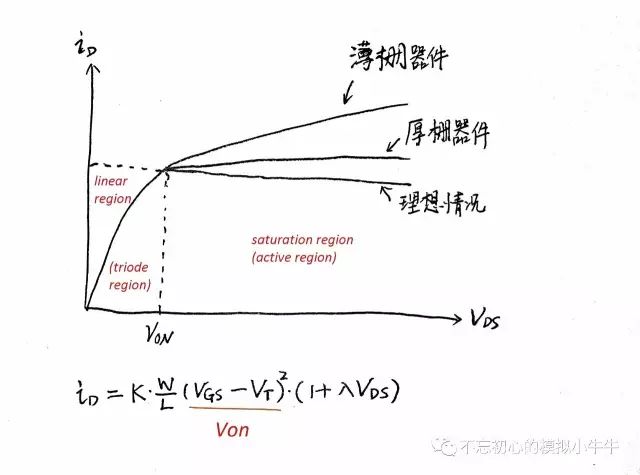 iD
薄栅器件
厚栅器件
理想情况
linear
region
(triode
region)
saturation region
(active region)
VON
VDS
iD = K·W/L (VGS − VT)²·(1+λVDS)
Von
不忘初心的模拟小牛牛